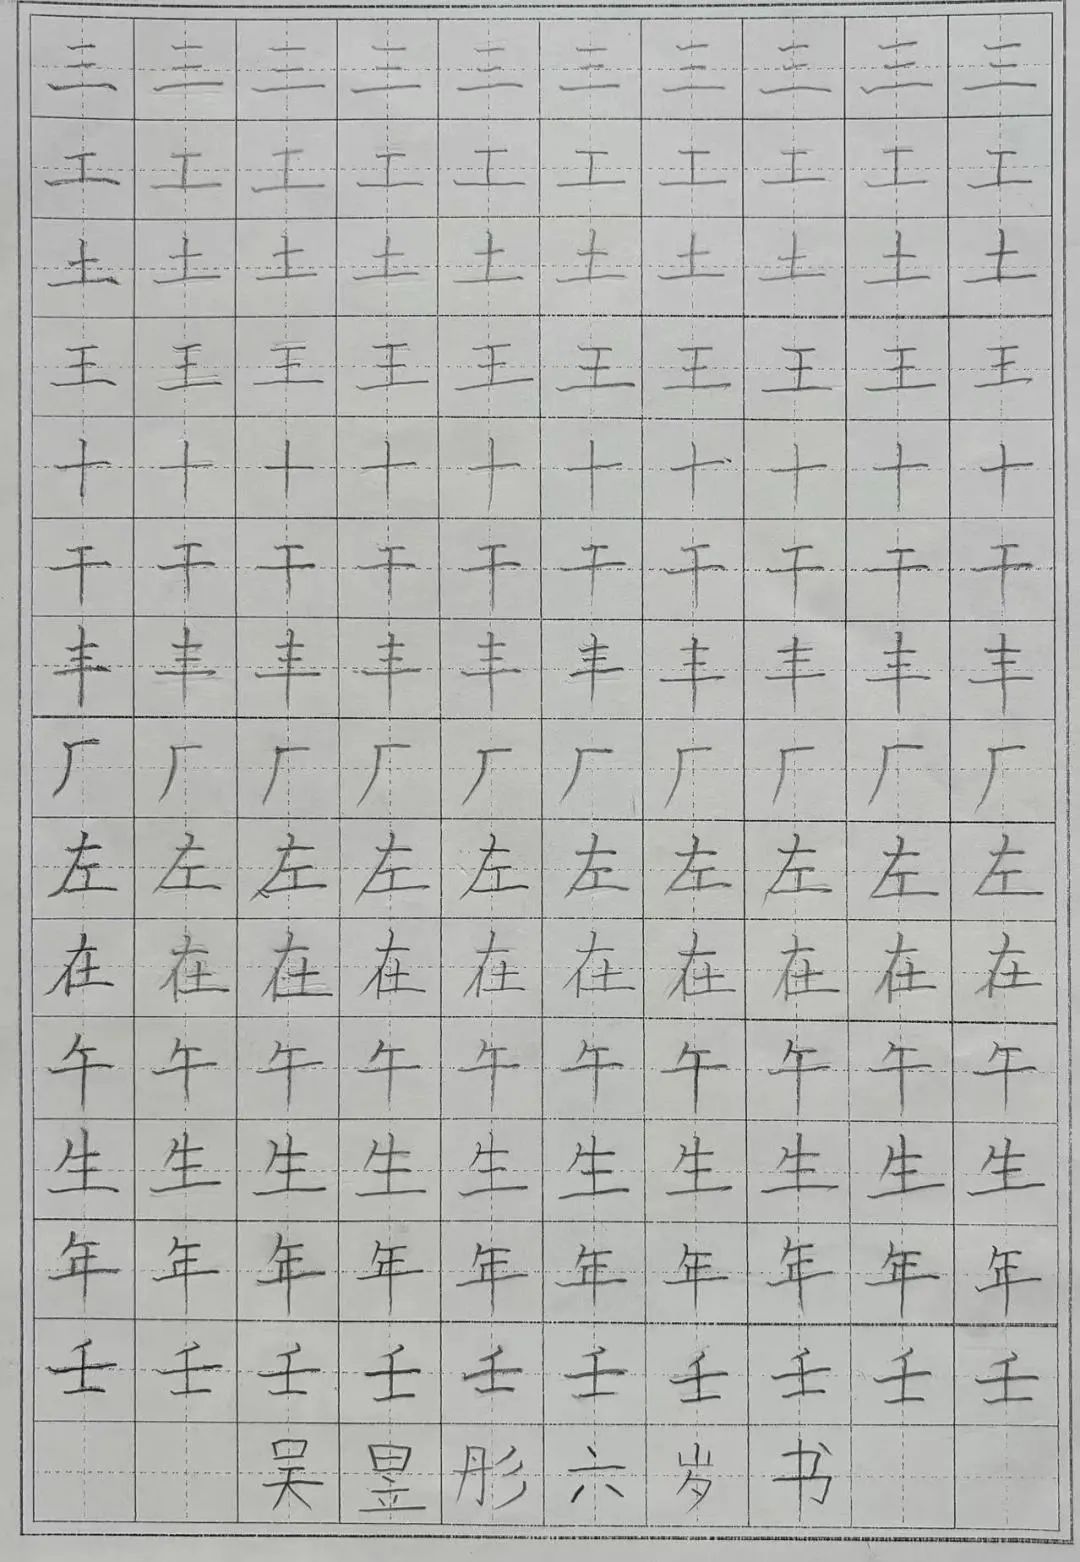 三三三三三三三三三三
工工工工工工工工工工
土土土土土土土土土土
王王王王王王王王王王
十十十十十十十十十十
干干干干干干干干干干
丰丰丰丰丰丰丰丰丰丰
厂厂厂厂厂厂厂厂厂厂
左左左左左左左左左左
在在在在在在在在在在
午午午午午午午午午午
生生生生生生生生生生
年年年年年年年年年年
壬壬壬壬壬壬壬壬壬壬
吴昱彤六岁书